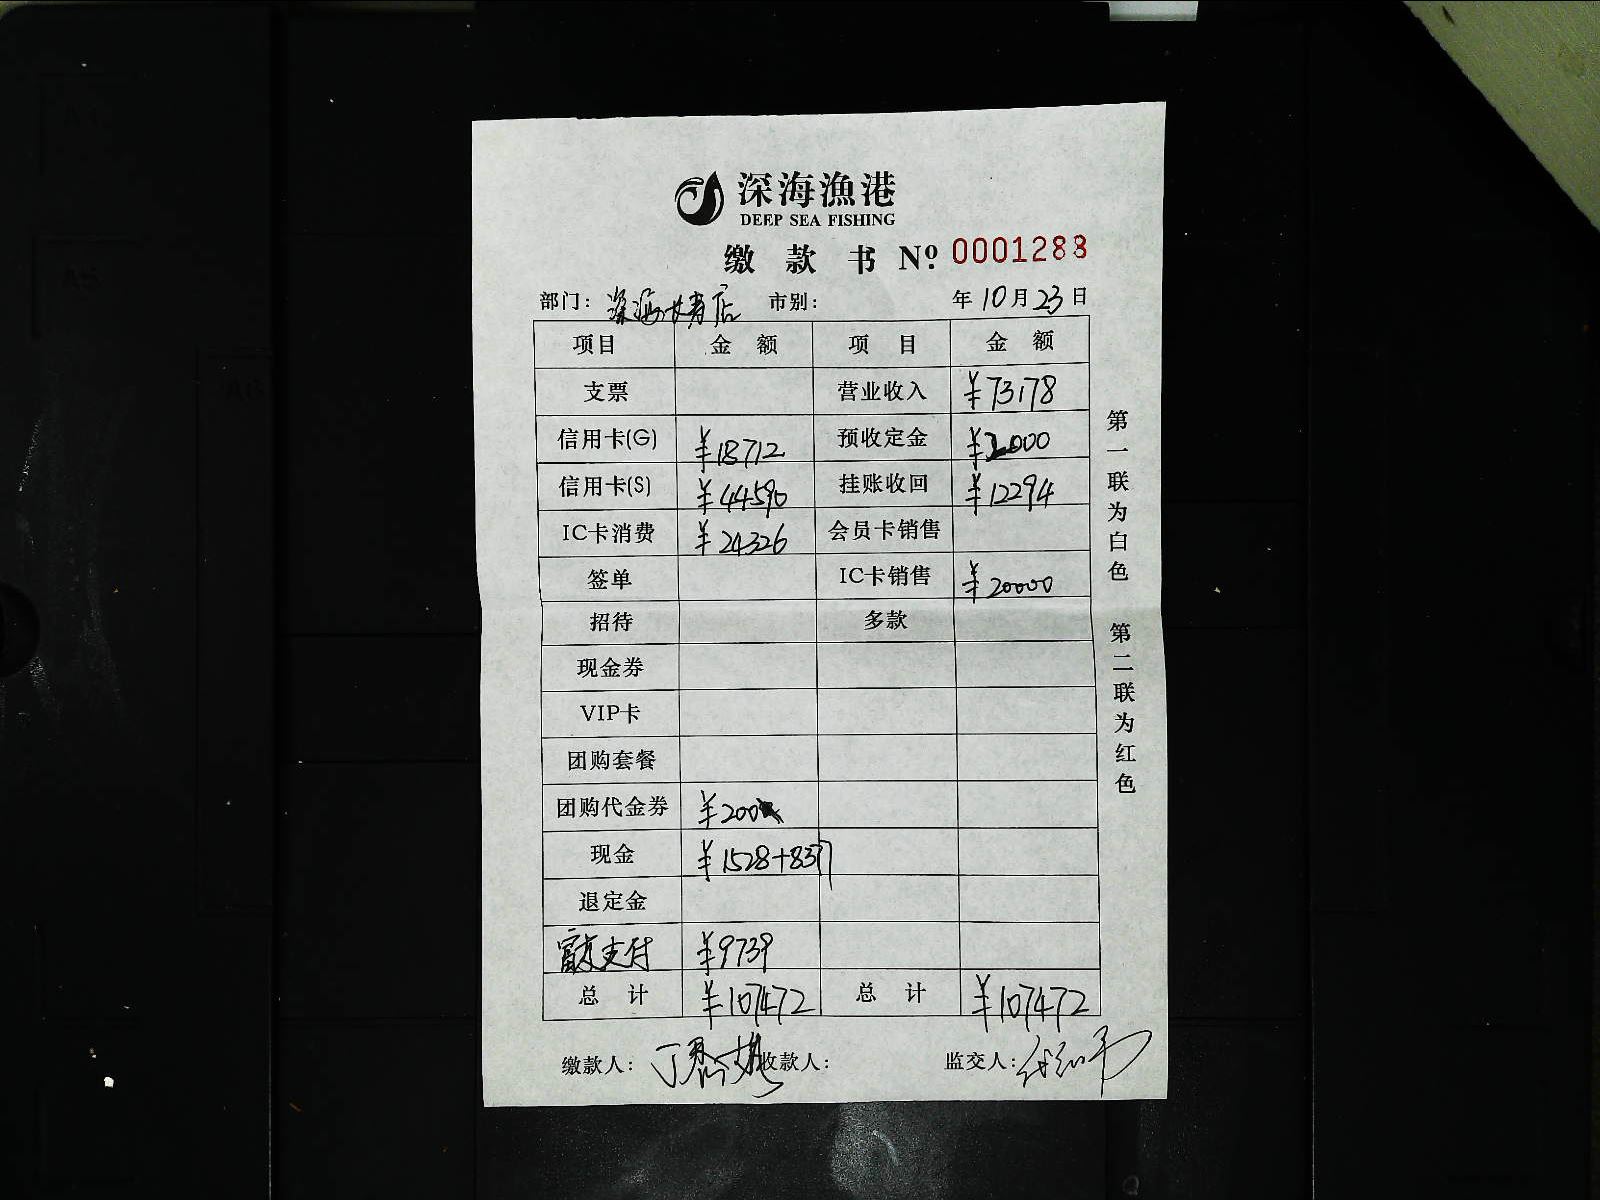 深海漁港
DEEP SEA FISHING
缴款书 Nº 0001288
部门: 深海 店 市别: 年 10月 23日
项目 金额 项目 金额
支票 营业收入 ¥73178
信用卡(G) ¥18712 预收定金 ¥2000
信用卡(S) ¥44590 挂账收回 ¥12294
IC卡消费 ¥24326 会员卡销售
签单 IC卡销售 ¥20000
招待 多款
现金券
VIP卡
团购套餐
团购代金券 ¥200
现金 ¥1528+8377
退定金
富友支付 ¥9739
总计 ¥107472 总计 ¥107472
缴款人: 丁 收款人: 监交人:
第一联为白色 第二联为红色